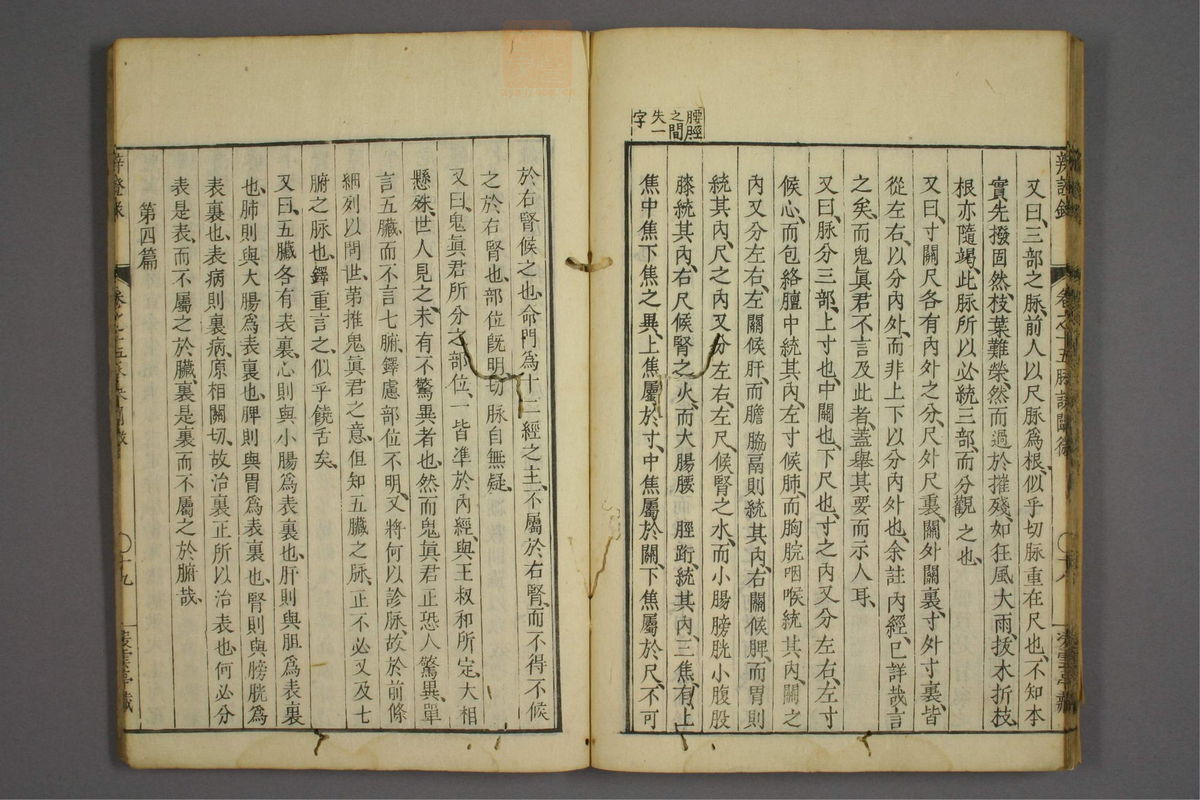 腰脛
之間
失一
字
又曰、三部之脉、前人以尺脉爲根、似乎切脉重在尺也、不知本
實先撥、固然枝葉難榮、然而過於摧殘、如狂風大雨、拔木折枝、
根亦隨竭、此脉所以必統三部、而分觀之也、
又曰、寸關尺各有內外之分、尺外尺裏、關外關裏、寸外寸裏、皆
從左右、以分內外、而非上下以分內外也、余註內經、已詳哉言
之矣、而鬼眞君不言及此者、蓋舉其要而示人耳、
又曰、脉分三部、上寸也、中關也、下尺也、寸之內又分左右、左寸
候心、而包絡膻中統其內、左寸候肺、而胸脘咽喉統其內、關之
內又分左右、左關候肝、而膽脇鬲則統其內、右關候脾、而胃則
統其內、尺之內又分左右、左尺候腎之水、而小腸膀胱小腹股
膝統其內、右尺候腎之火、而大腸腰 脛䯒、統其內、三焦有上
焦中焦下焦之異、上焦屬於寸、中焦屬於關、下焦屬於尺、不可
辨證錄 卷之十五脉訣闡微 〇十八 凌雲亭藏
於右腎候之也、命門爲十二經之主、不屬於右腎、而不得不候
之於右腎也、部位旣明、切脉自無疑、
又曰、鬼眞君所分之部位、一皆準於內經、與王叔和所定、大相
懸殊、世人見之、未有不驚異者也、然而鬼眞君正恐人驚異、單
言五臟、而不言七腑、鐸慮部位不明、又將何以診脉、故於前條
細列以問世、第推鬼眞君之意、但知五臟之脉、正不必又及七
腑之脉也、鐸重言之、似乎饒舌矣、
又曰、五臟各有表裏、心則與小腸爲表裏也、肝則與胆爲表裏
也、肺則與大腸爲表裏也、脾則與胃爲表裏也、腎則與膀胱爲
表裏也、表病則裏病、原相關切、故治裏正所以治表也、何必分
表是表、而不屬之於臟、裏是裏、而不屬之於腑哉、
第四篇
辨證錄 卷之十五脉訣闡微 〇十九 凌雲亭藏